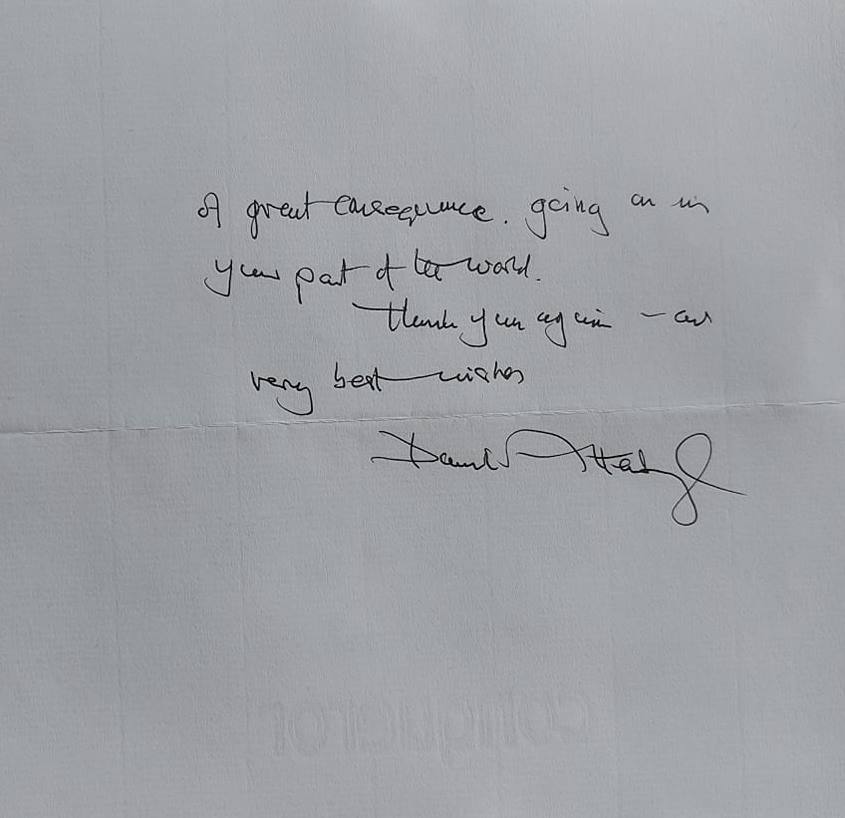 of great consequence. going on in
your part of the world.
Thank you again – and
very best wishes
David Attenborough
conqueror